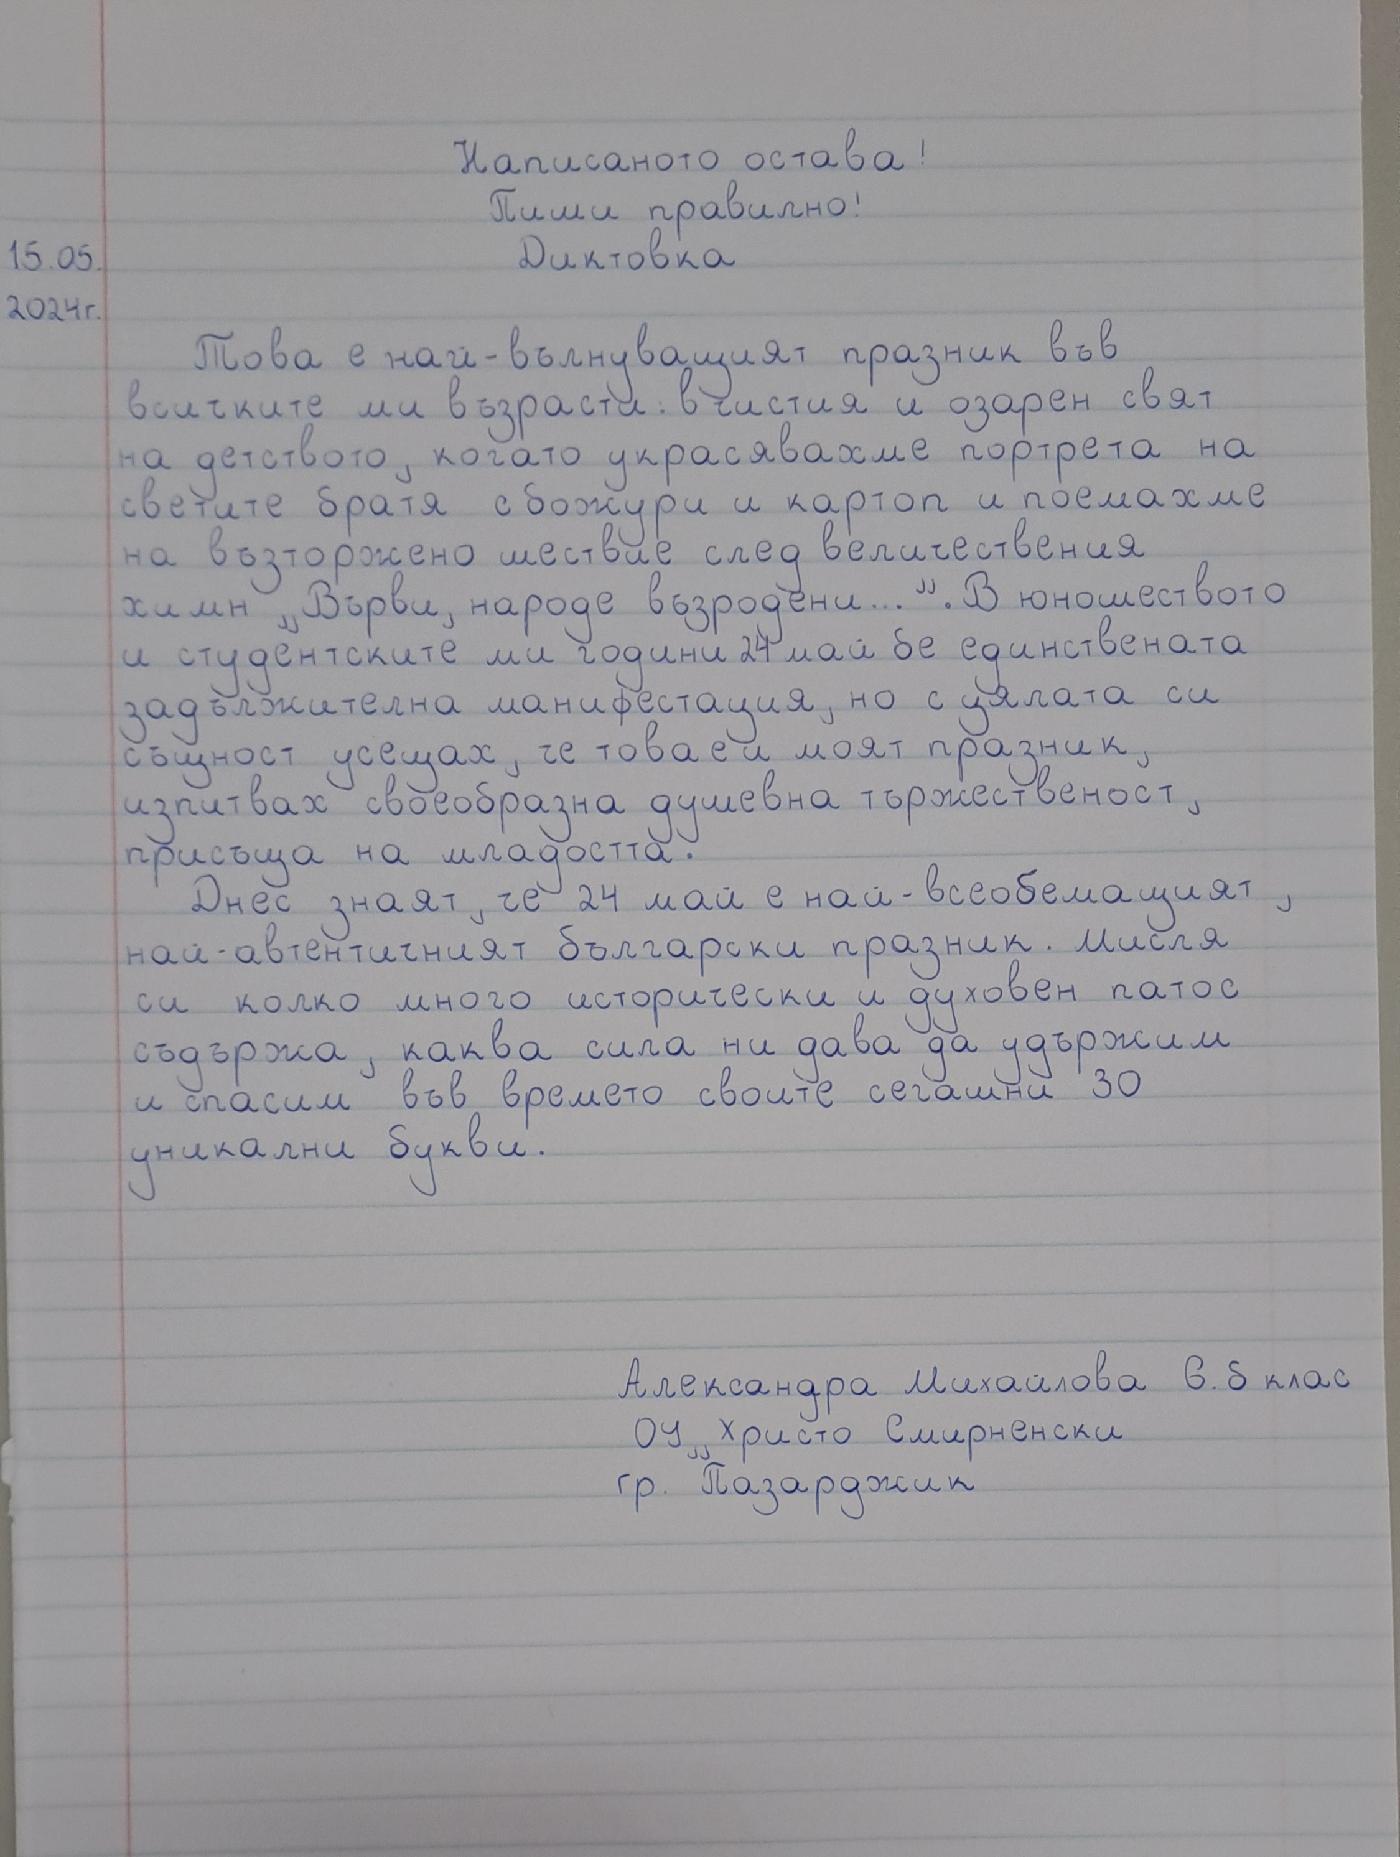 Написаното остава!
Пиши правилно!
15.05.
Диктовка
2024г.
Това е най-вълнуващият празник във
всичките ми възрасти: в чистия и озарен свят
на детството, когато украсявахме портрета на
светите братя с божури и картоп и поемахме
на възторжено шествие след величествения
химн „Върви, народе възродени...”. В юношеството
и студентските ми години 24 май бе единствената
задължителна манифестация, но с цялата си
същност усещах, че това е и моят празник,
изпитвах своеобразна душевна тържественост,
присъща на младостта.
Днес знаят, че 24 май е най-всеобемащият,
най-автентичният български празник. Мисля
си колко много исторически и духовен патос
съдържа, каква сила ни дава да удържим
и спасим във времето своите сегашни 30
уникални букви.
Александра Михайлова 6.б клас
ОУ „Христо Смирненски
гр. Пазарджик